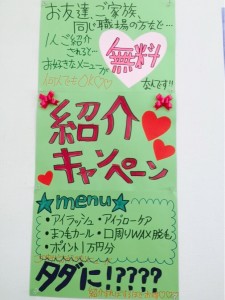 お友達、ご家族、
同じ職場の方など…
1人ご紹介
されると…
無料
お好きなメニューが
なんです!!
紹介
キャンペーン
★menu★
・アイラッシュ・アイブローケア
・まつもカール・口周りWAX脱毛
・ポイント1万円分
タダに!????